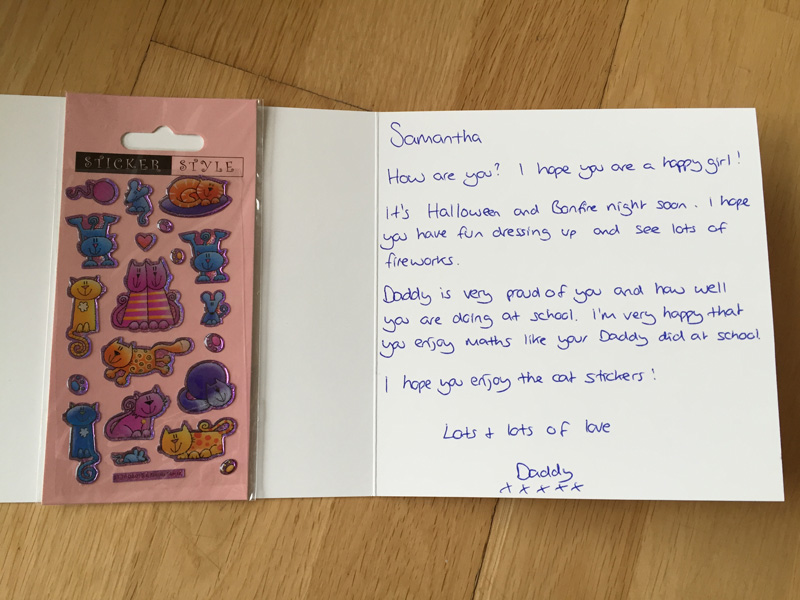 STICKER STYLE
Samantha
How are you? I hope you are a happy girl!
It's Halloween and Bonfire night soon. I hope
you have fun dressing up and see lots of
fireworks.
Daddy is very proud of you and how well
you are doing at school. I'm very happy that
you enjoy maths like your Daddy did at school.
I hope you enjoy the cat stickers!
Lots + lots of love
Daddy
x x x x x